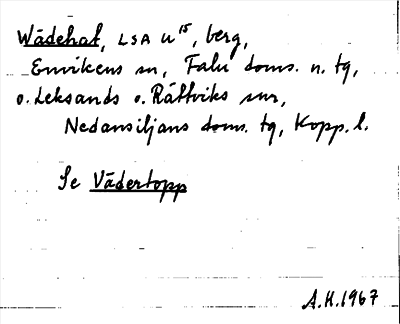 Wådehat, LSA U¹⁵, berg,
Envikens sn, Falu doms. n. tg,
o. Leksands o. Rättviks snr,
Nedansiljans doms. tg, Kopp. l.
Se Vädertopp
A.H. 1967